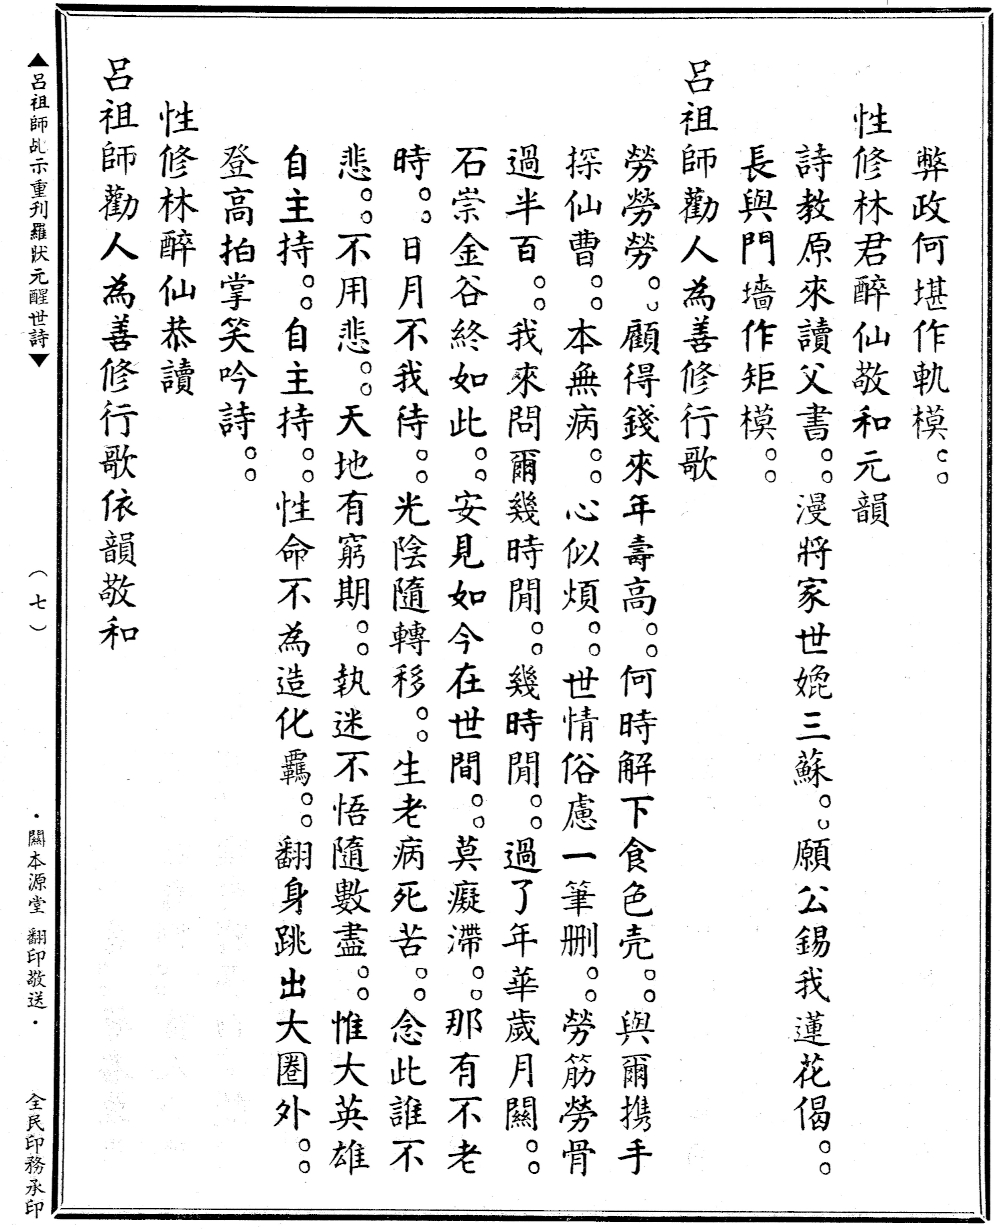 弊政何堪作軌模。。
性修林君醉仙敬和元韻
詩教原來讀父書。。漫將家世媲三蘇。。願公錫我蓮花偈。。
長與門墻作矩模。。
呂祖師勸人為善修行歌
勞勞勞。。顧得錢來年壽高。。何時解下食色壳。。與爾携手
探仙曹。。本無病。。心似煩。。世情俗慮一筆刪。。勞筋勞骨
過半百。。我來問爾幾時閒。。幾時閒。。過了年華歲月關。。
石崇金谷終如此。。安見如今在世間。。莫癡滯。。那有不老
時。。日月不我待。。光陰隨轉移。。生老病死苦。。念此誰不
悲。。不用悲。。天地有窮期。。執迷不悟隨數盡。。惟大英雄
自主持。。自主持。。性命不為造化羈。。翻身跳出大圈外。。
登高拍掌笑吟詩。。
性修林醉仙恭讀
呂祖師勸人為善修行歌依韻敬和
▲呂祖師乩示重刋羅狀元醒世詩▼
（七）
·關本源堂 翻印敬送·
全民印務承印